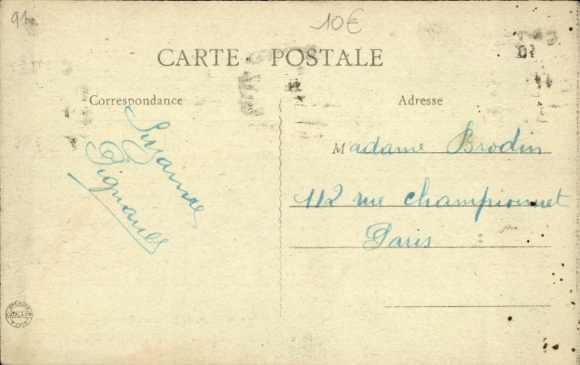 91
10€
CARTE POSTALE
Correspondance
Adresse
Suzanne
Madame Brodin
112 rue Championnet
Paris